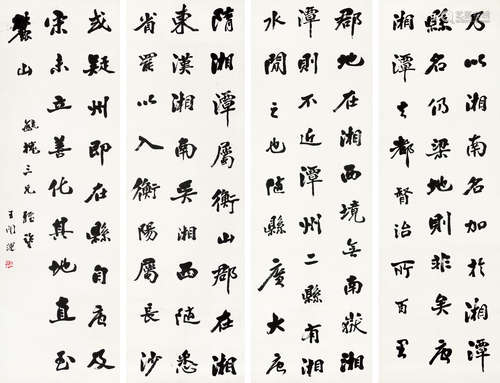 乃以湘南名加於湘潭
縣名仍梁地則非矣唐
湘潭去都督治所百里
郡地在湘西境無南嶽湘
潭則不近潭州二縣有湘
水閒之也隨縣廣大唐
隋湘潭屬衡山郡在湘
東漢湘南吳湘西隨悉
省罷以入衡陽屬長沙
或疑州即在縣自唐及
宋未立善化其地直至
麓山
三兄
王闓運